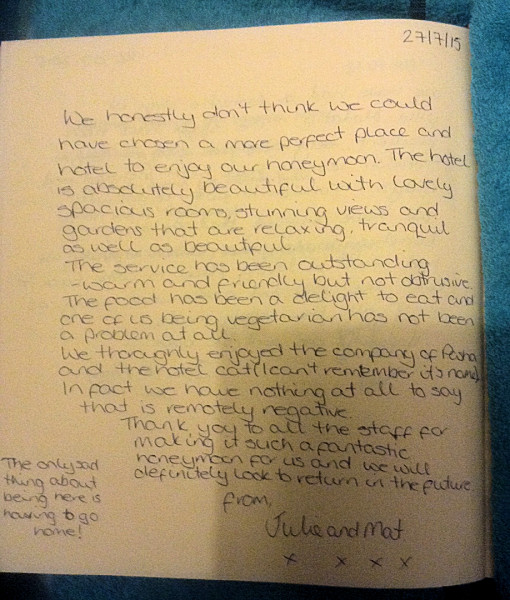 27/7/15
We honestly don't think we could
have chosen a more perfect place and
hotel to enjoy our honeymoon. The hotel
is absolutely beautiful with lovely
spacious rooms, stunning views and
gardens that are relaxing, tranquil
as well as beautiful.
The service has been outstanding
- warm and friendly but not obtrusive.
The food has been a delight to eat and
one of us being vegetarian has not been
a problem at all.
We thoroughly enjoyed the company of Pasha
and the hotel cat (I can't remember its name)
In fact we have nothing at all to say
that is remotely negative.
Thank you to all the staff for
making it such a fantastic
honeymoon for us and we will
definitely look to return in the future.
from,
Julie and Mat
x x x x
The only sad
thing about
being here is
having to go
home!